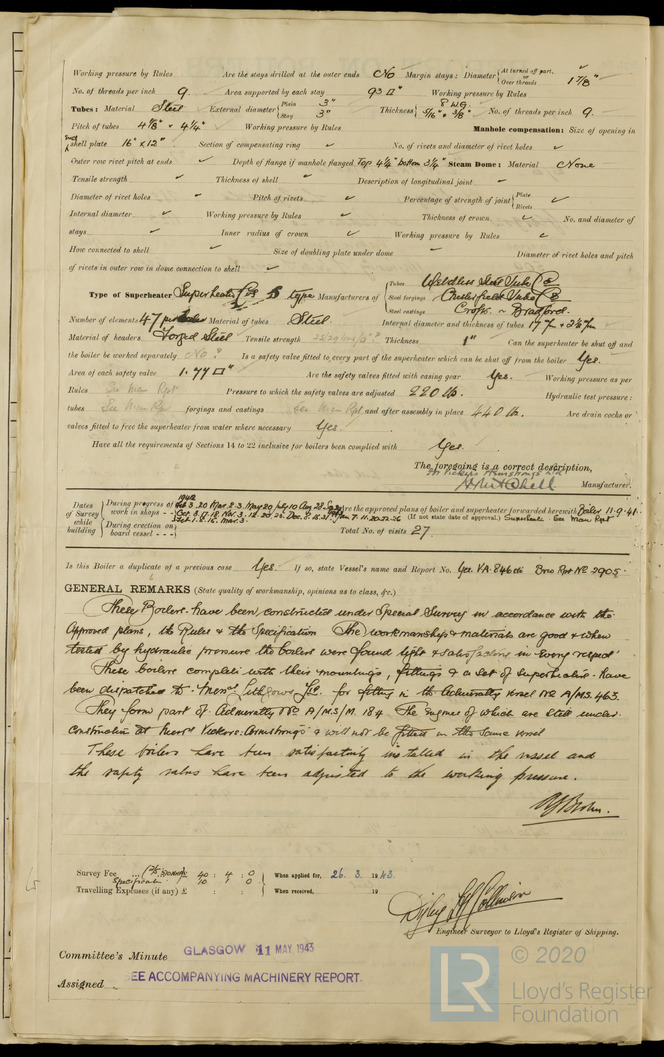 Working pressure by Rules ✓ Are the stays drilled at the outer ends No Margin stays: Diameter { At turned off part, or Over threads 1 7/8"
No. of threads per inch 9. Area supported by each stay 93 □" Working pressure by Rules
Tubes: Material Steel External diameter { Plain 3" Stay 3" Thickness { 8 WG. 5/16" & 3/8" No. of threads per inch 9.
Pitch of tubes 4 1/8" × 4 1/4" Working pressure by Rules Manhole compensation: Size of opening in
shell plate 16" x 12" Section of compensating ring ✓ No. of rivets and diameter of rivet holes ✓
Outer row rivet pitch at ends ✓ Depth of flange if manhole flanged Top 4 1/4" bottom 3 1/4" Steam Dome: Material None
Tensile strength ✓ Thickness of shell ✓ Description of longitudinal joint ✓
Diameter of rivet holes ✓ Pitch of rivets ✓ Percentage of strength of joint { Plate Rivets
Internal diameter ✓ Working pressure by Rules ✓ Thickness of crown ✓ No. and diameter of
stays ✓ Inner radius of crown ✓ Working pressure by Rules ✓
How connected to shell ✓ Size of doubling plate under dome ✓ Diameter of rivet holes and pitch
of rivets in outer row in dome connection to shell ✓
Type of Superheater Superheater type Manufacturers of { Tubes Weldless Steel Tube Co
Steel forgings Chesterfield Tube Co
Steel castings Crofts ~ Bradford.
Number of elements 47 per boiler Material of tubes Steel. Internal diameter and thickness of tubes
Material of headers Forged Steel Tensile strength Thickness 1" Can the superheater be shut off and
the boiler be worked separately No? Is a safety valve fitted to every part of the superheater which can be shut off from the boiler Yes.
Area of each safety valve 1.77 □" Are the safety valves fitted with easing gear Yes. Working pressure as per
Rules See Man Rpt Pressure to which the safety valves are adjusted 220 lb. Hydraulic test pressure:
tubes See Man Rpt forgings and castings See Man Rpt and after assembly in place 440 lb. Are drain cocks or
valves fitted to free the superheater from water where necessary Yes.
Have all the requirements of Sections 14 to 22 inclusive for boilers been complied with Yes.
The foregoing is a correct description,
Vickers Armstrongs Ltd
Manufacturer.
Dates of Survey while building { During progress of work in shops - - 1942 Feb 3. 20 Mar 2. 3. May 20 July 10 Aug 28
During erection on board vessel - - -
Are the approved plans of boiler and superheater forwarded herewith Boiler 11.9.41.
(If not state date of approval.) Superheater. See Man Rpt
Total No. of visits 27.
Is this Boiler a duplicate of a previous case Yes. If so, state Vessel's name and Report No. Yes VA 846 Brw Rpt No 2905.
GENERAL REMARKS (State quality of workmanship, opinions as to class, &c.)
These Boilers have been constructed under Special Survey in accordance with the
Approved plans, the Rules & the Specification The workmanship & materials are good & when
tested by hydraulic pressure the boilers were found tight & satisfactory in every respect.
These boilers complete with their mountings, fittings & a set of superheaters have
been despatched to Messrs Lithgows Ltd. for fitting in the Admiralty Vessel No A/MS 463.
They form part of Admiralty No A/MS/M. 184 The engines of which are still under
construction at Messrs Vickers-Armstrongs & will not be fitted in the same vessel
These boilers have been satisfactorily installed in the vessel and
the safety valves have been adjusted to the working pressure.
Survey Fee ... 40 : 4 : 0 When applied for, 26. 3. 1943.
Specification 10 1 0
Travelling Expenses (if any) £ : : When received, 19
Engineer Surveyor to Lloyd's Register of Shipping.
Committee's Minute GLASGOW 11 MAY 1943
Assigned SEE ACCOMPANYING MACHINERY REPORT.
LR © 2020
Lloyd's Register
Foundation